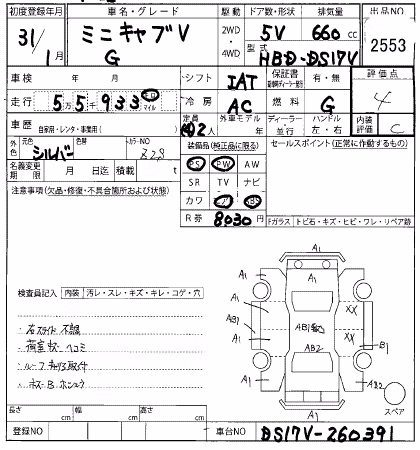 初度登録年月 車名・グレード 駆動 ドア数・形状 排気量 出品NO
31/1月 ミニキャブV G 2WD 4WD 5V 660cc 2553
型式 HBD-DS17V
車検 年 月 シフト IAT 保証書 有・無 評価点
走行 5万5千933 マイル 冷房 AC 燃料 G 4
車歴 自家用・レンタ・事業用( ) 定員 2人 外車モデル 年 ディーラー・並行 ハンドル 左・右 内装評価 C
外色 元色 シルバー 色替 カラーNO
装備品(純正品に限る) セールスポイント(正常に作動するもの)
名義変更期限 月 日迄 積載 t
PS PW AW
SR TV ナビ
カワ エア ABS
注意事項(欠品・修復・不具合箇所および状態)
R券 8030円
Fガラス トビ石・キズ・ヒビ・ワレ・リペア跡
検査員記入 内装 汚レ・スレ・キズ・キレ・コゲ・穴
A1
A1 A1
A1 XX
AB1 AB1
A1 XX B1
AB2
A1 AB2
A1
スペア
長さ cm 幅 cm 高さ cm
登録NO 車台NO DS17V-260391